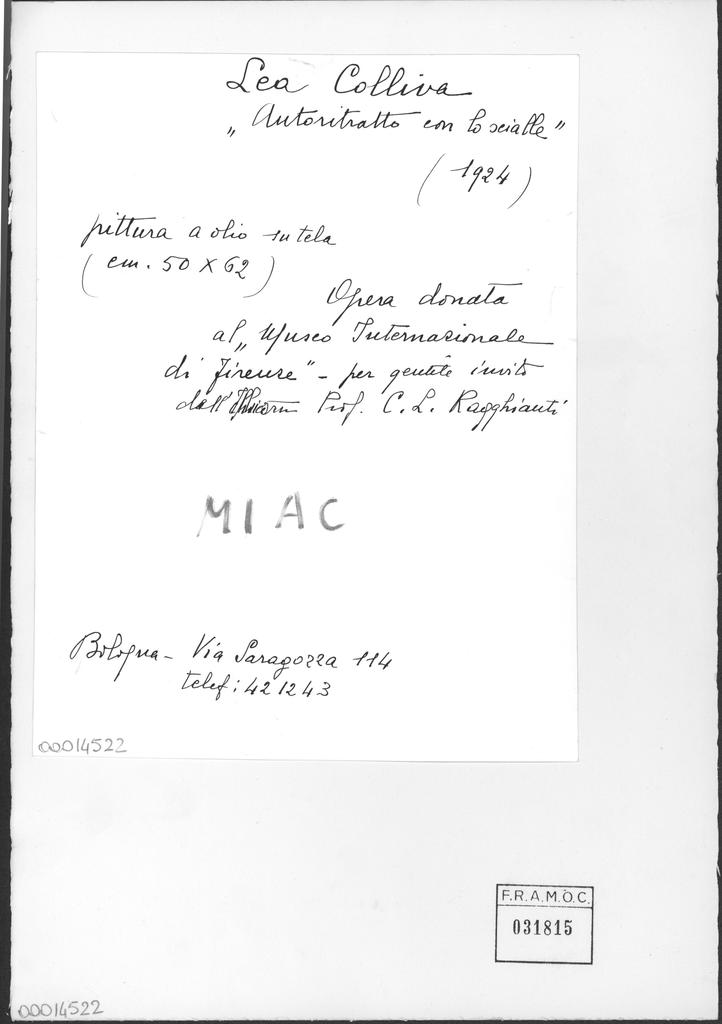 Lea Colliva
„Autoritratto con lo scialle"
(1924)
pittura a olio su tela
(cm. 50 X 62)
Opera donata
al „Museo Internazionale
di Firenze" - per gentile invito
dall' Prof. C. L. Ragghianti
MIAC
Bologna - Via Saragozza 114
telef: 421243
00014522
F.R.A.M.O.C.
031815
00014522